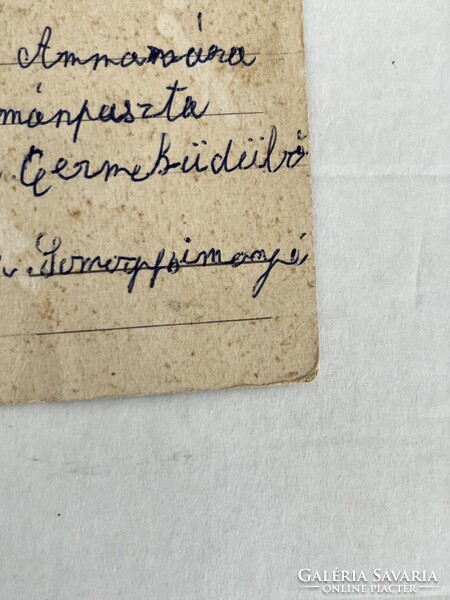 Annamára
mánpuszta
Germeküdülő
Somogysimonyi
GALÉRIA SAVARIA
ONLINE PIACTÉR